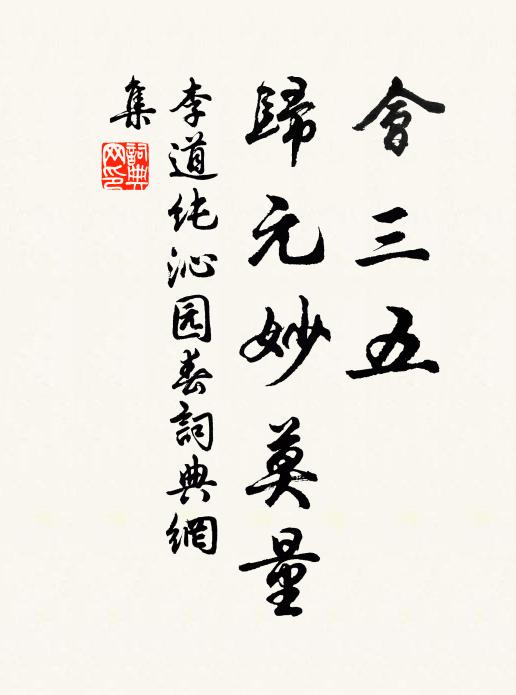 會三五
歸元妙莫量
李道纯沁园春詞典網
集
詞典
网印